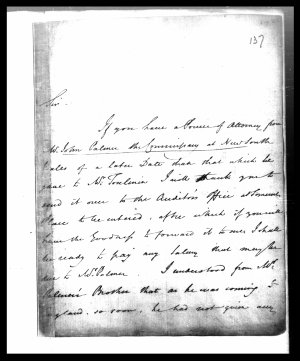 137
Sir
If you have a Power of Attorney from
Mr. John Palmer the Commissary at New South
Wales of a later Date than that which he
gave to Mr. Tomlinson I will thank you to
send it over to the Auditors Office at Somerset
Place to be entered, after which if you will
have the Goodness to forward it to me, I shall
be ready to pay any Salary that may be
due to Mr. Palmer. I understood from Mr.
Palmer's Brother that as he was coming to
England so soon, he had not given any